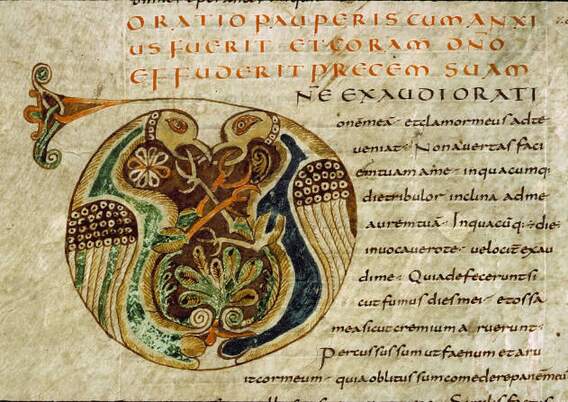 ORATIO PAUPERIS CUM ANXI
US FUERIT ET CORAM DÑO
EFFUDERIT PRECEM SUAM
NE EXAUDI ORATI
onem meã· et clamor meus ad te
veniat· Non avertas faci
em tuam a me· in quacumq;
die tribulor inclina ad me
aurem tuã· In quacũq;· die
invocavero te· velocit exau
di me· Quia defecerunt si
cut fumus dies mei· et ossa
mea sicut cremium aruerunt·
Percussus sum ut faenum et aru
it cor meum· quia oblitus sum comedere panem